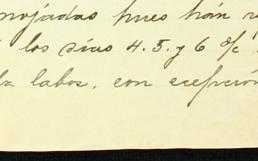 mojadas pues han
los días 4. 5. y 6 %
la labor, con esepción